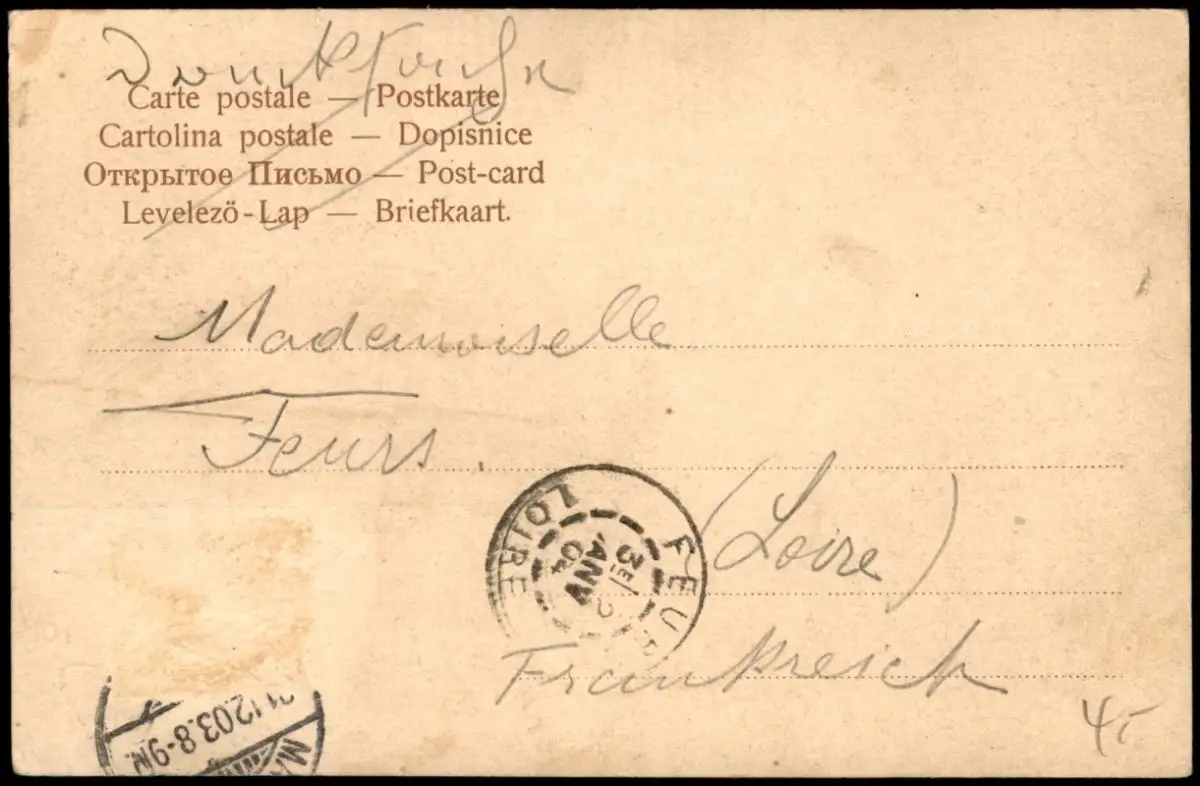 Drucksache
Carte postale — Postkarte
Cartolina postale — Dopisnice
Открытое Письмо — Post-card
Levelező-Lap — Briefkaart.
Mademoiselle
Feurs.
(Loire)
Frankreich
FEUR
LOIRE
3E/ 2
JANV
04
.12.03.8-9N.
MA
4,-